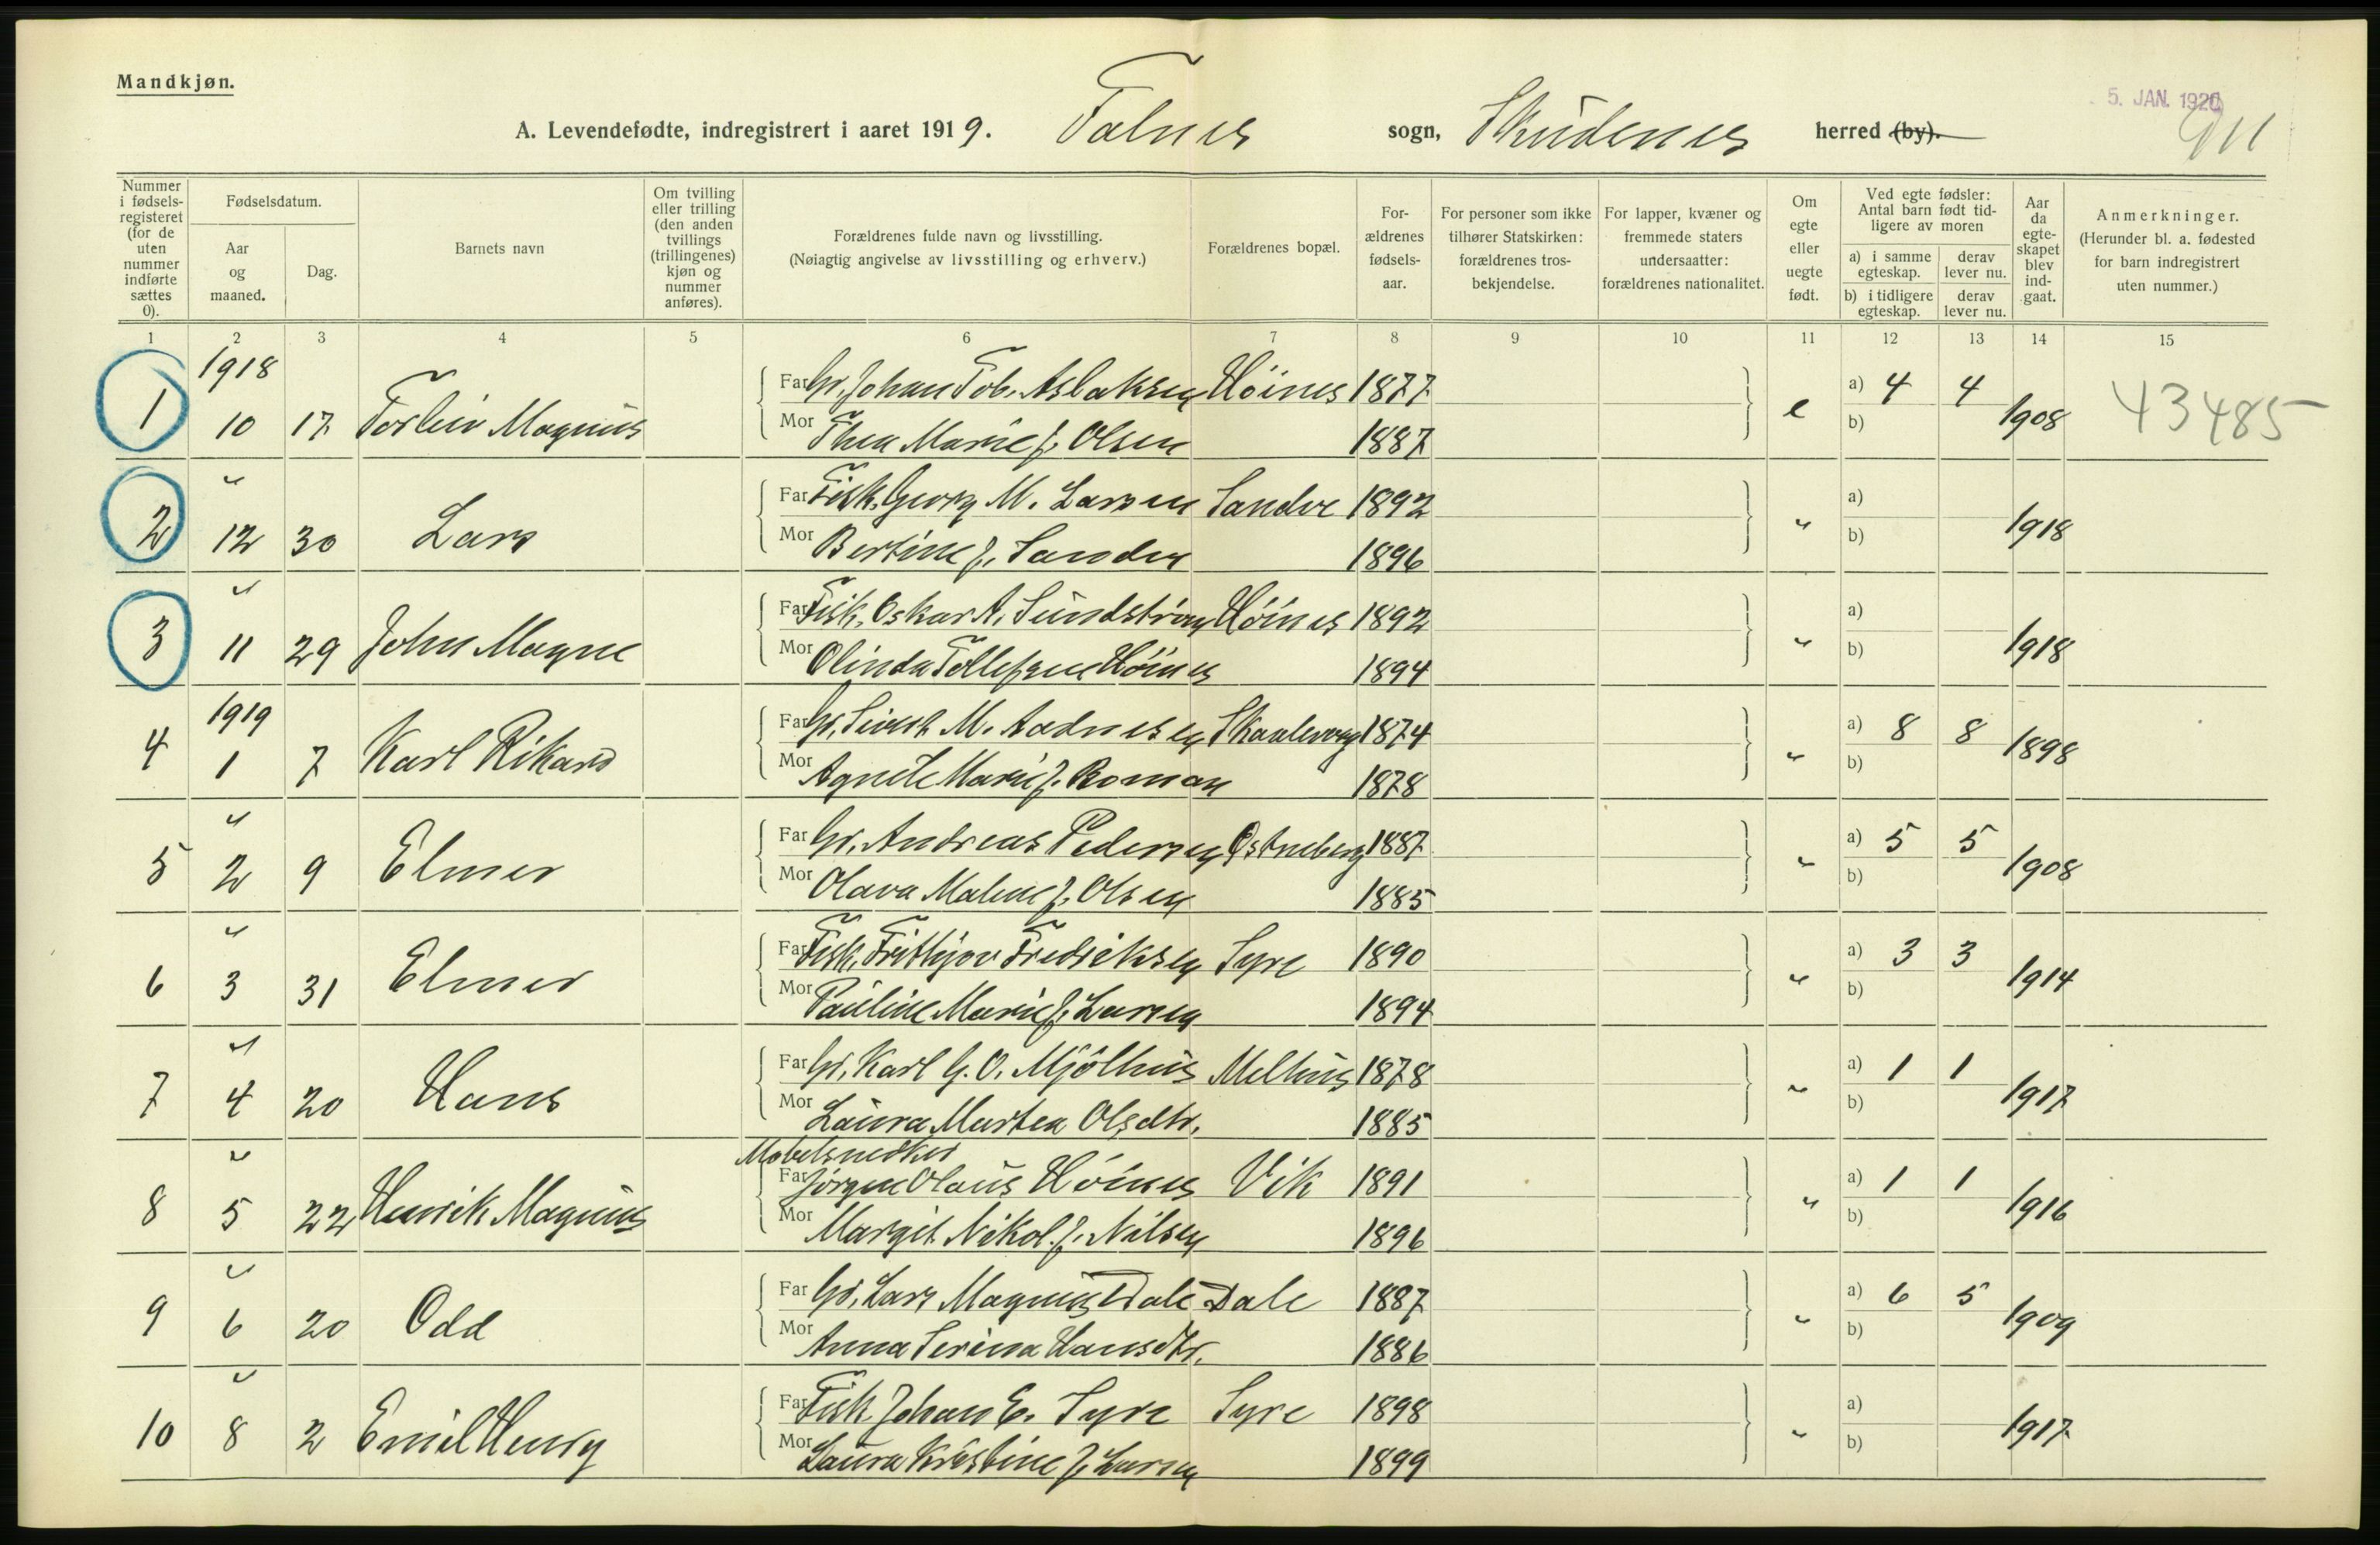 Mandkjøn.
5. JAN. 1920
A. Levendefødte, indregistrert i aaret 1919. Falnes sogn, Skudenes herred (by).
Nummer i fødselsregisteret (for de uten nummer indførte sættes 0).
Fødselsdatum.
Aar og maaned.
Dag.
Barnets navn
Om tvilling eller trilling (den anden tvillings (trillingenes) kjøn og nummer anføres).
Forældrenes fulde navn og livsstilling.
(Nøiagtig angivelse av livsstilling og erhverv.)
Forældrenes bopæl.
Forældrenes fødselsaar.
For personer som ikke tilhører Statskirken: forældrenes trosbekjendelse.
For lapper, kvæner og fremmede staters undersaatter: forældrenes nationalitet.
Om egte eller uegte født.
Ved egte fødsler: Antal barn født tidligere av moren
a) i samme egteskap. derav lever nu.
b) i tidligere egteskap. derav lever nu.
Aar da egteskapet blev indgaat.
Anmerkninger.
(Herunder bl. a. fødested for barn indregistrert uten nummer.)
1 2 3 4 5 6 7 8 9 10 11 12 13 14 15
1918
Far Gr. Johan Tob. Aslaksen Høines 1877 a) 4 4
1 10 17 Torleiv Magnus e 1908 43485
Mor Thea Marie f. Olsen 1887 b)
" Far Fisk. Georg M. Larsen Sandve 1892 a)
2 12 30 Lars " 1918
Mor Bertine f. Sandve 1896 b)
" Far Fisk. Oskar A. Sundstrøm Høines 1892 a)
3 11 29 John Magne " 1918
Mor Olinda Tollefsen Høines 1894 b)
1919
Far Gr. Sivert M. Aadnesen Skaalevvag 1874 a) 8 8
4 1 7 Karl Rikard " 1898
Mor Agnete Marie f. Roman 1878 b)
" Far Gr. Andreas Pedersen Østneberg 1887 a) 5 5
5 2 9 Elmer " 1908
Mor Olava Malene f. Olsen 1885 b)
" Far Fisk. Frithjov Fredriksen Syre 1890 a) 3 3
6 3 31 Elmer " 1914
Mor Pauline Marie f. Larsen 1894 b)
" Far Gr. Karl G. O. Mjølhus Melhus 1878 a) 1 1
7 4 20 Hans " 1917
Mor Laura Martea Olsdtr. 1885 b)
Møbelsnedker
" Far Jørgen Olaus Høines Vik 1891 a) 1 1
8 5 22 Henrik Magnus " 1916
Mor Margit Nikol. f. Nilsen 1896 b)
" Far Gr. Lars Magnus Dale Dale 1887 a) 6 5
9 6 20 Odd " 1909
Mor Anna Serina Hansdtr. 1886 b)
" Far Fisk Johan E. Syre Syre 1898 a)
10 8 2 Emil Henry " 1917
Mor Laura Kristine f. Larsen 1899 b)